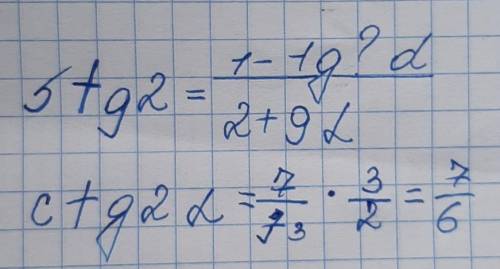 5tg2 = (1 - tg² α) / (2tg α)
ctg2α = 7/93 · 3/2 = 7/6